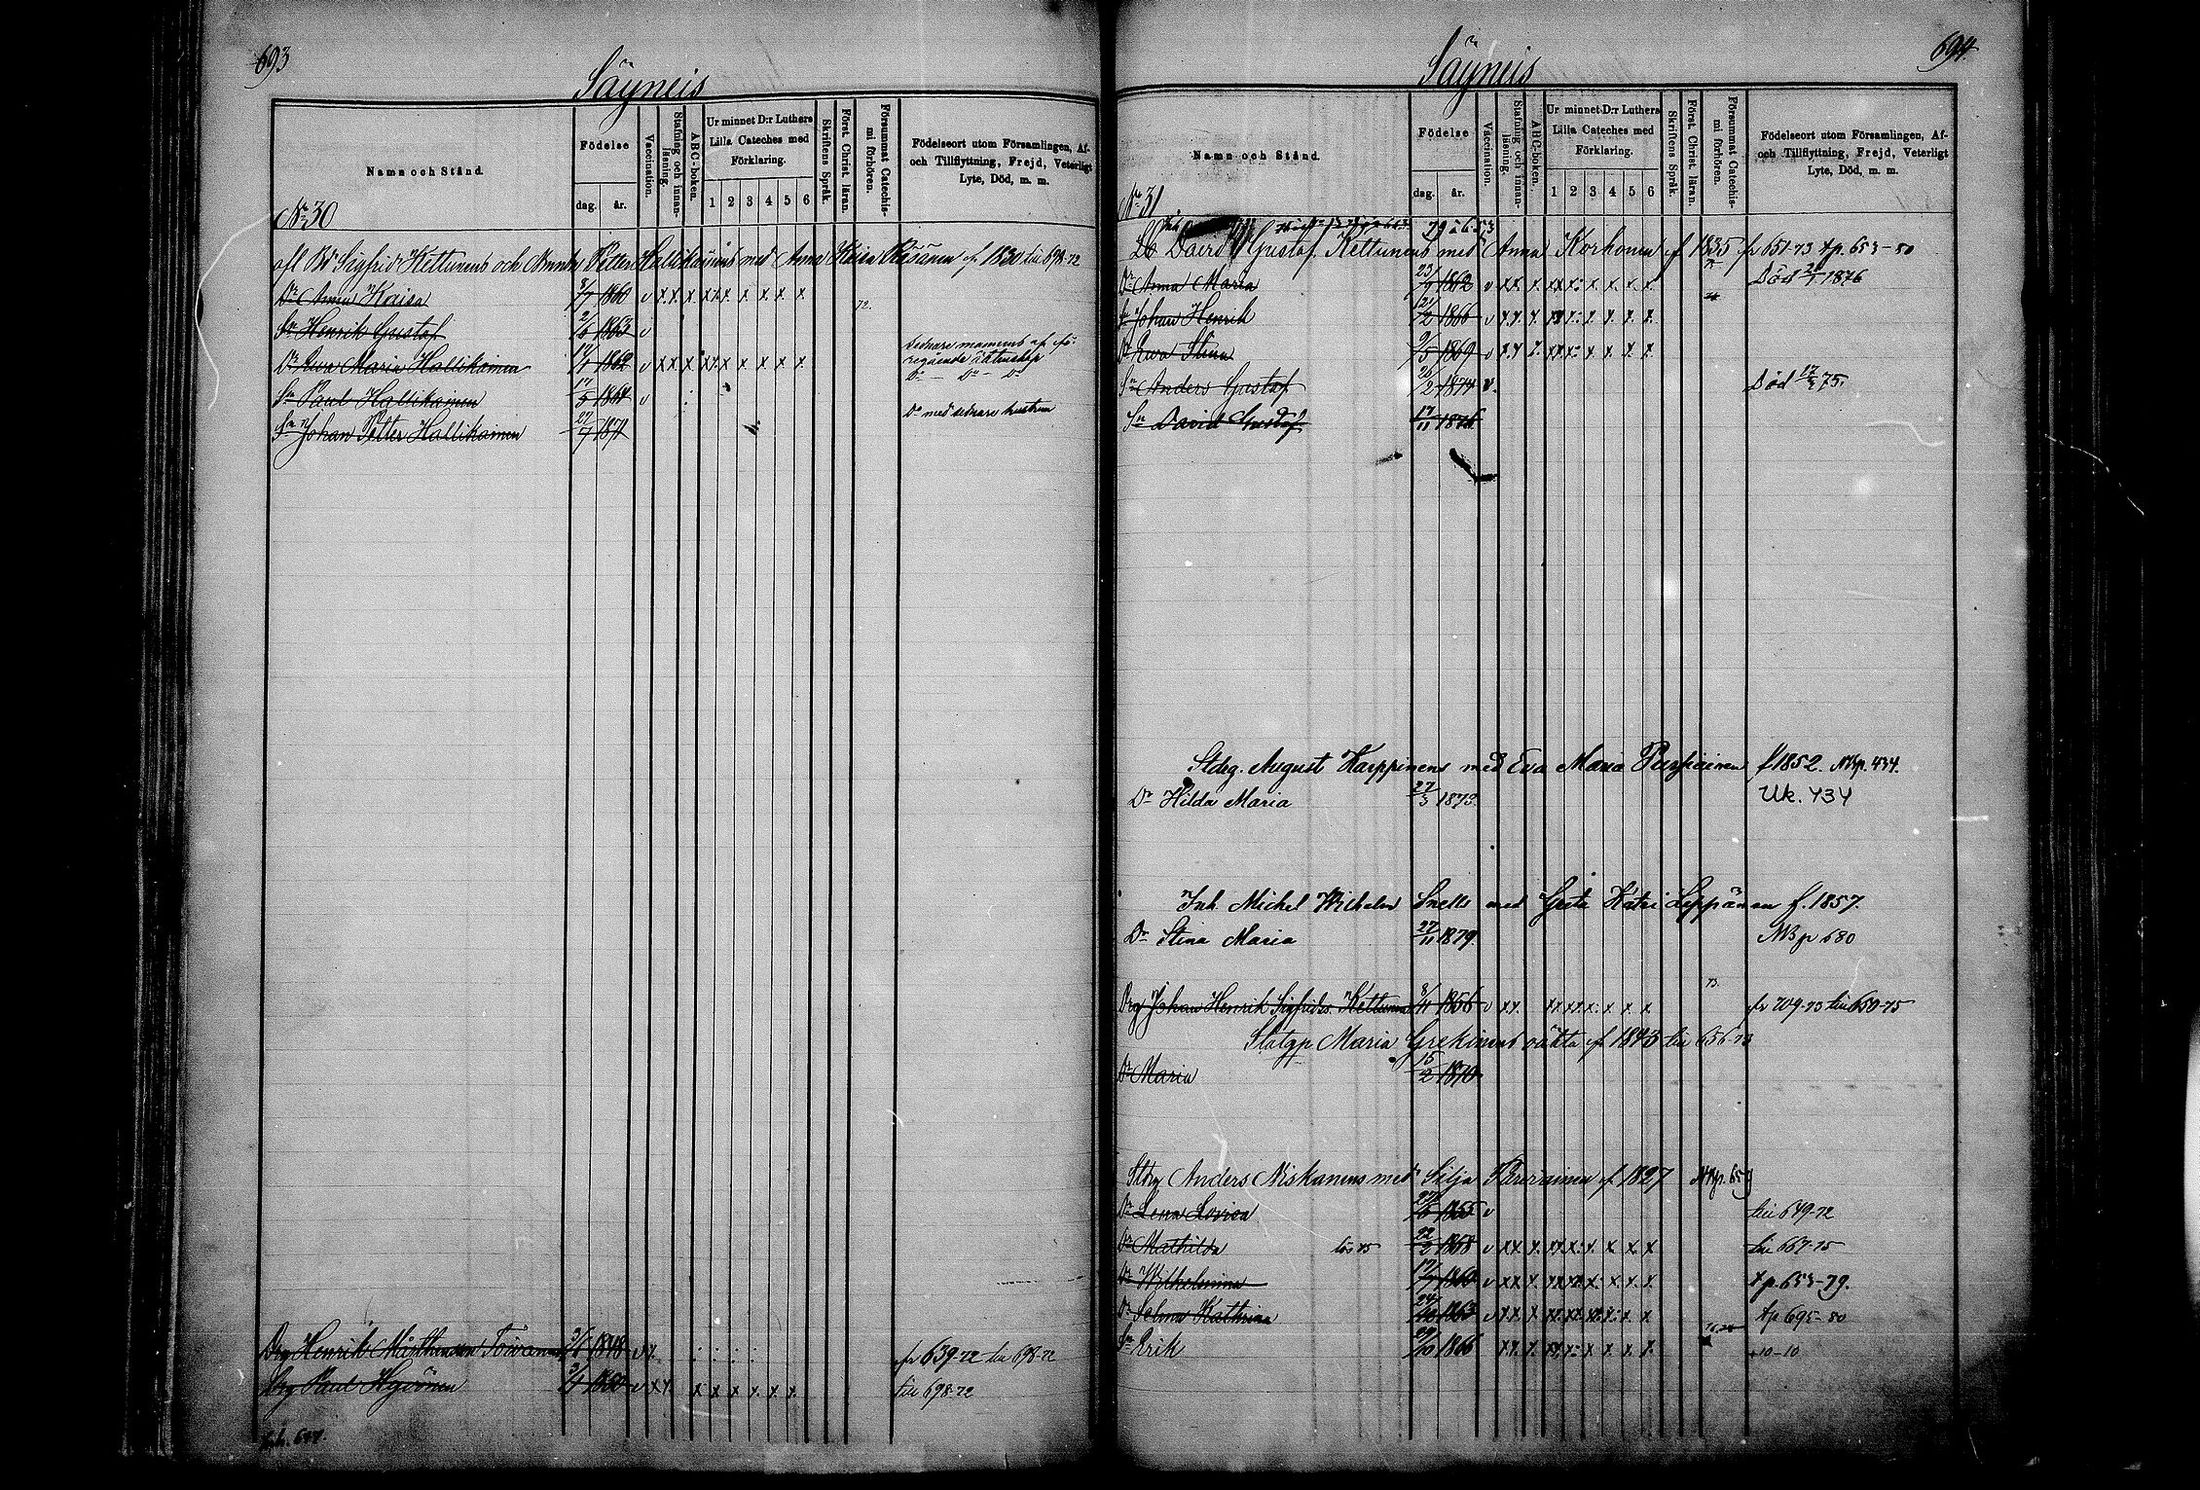 693
Säyneis
Namn och Stånd.
Födelse
dag.
år.
Vaccination.
Stafning och innan-läsning.
ABC-boken.
Ur minnet D:r Luthers Lilla Cateches med Förklaring.
1 2 3 4 5 6
Skriftens Språk.
Först. Christ. läran.
Försummat Catechis-mi förhören.
Födelseort utom Församlingen, Af- och Tillflyttning, Frejd, Veterligt Lyte, Död, m. m.
No 30
afl Bd Sigfrid Kettunens och Petter Hallikainens med Anna Kaisa Räsänen f 1830 till 698-72
Dr Anna Kaisa 8/7 1860 v x x x x x x x x x x 72.
Sn Henrik Gustaf 2/6 1863 v
Dr Ewa Maria Hallikainen 1862 v x x x x x x x x x
Sednare mannens af fö-
regående äktenskap
Sn Paul Hallikainen 17/5 1864 v Do — Do — Do
Sn Johan Petter Hallikainen 27/7 1871 Do med sednare hustrun
Drg Henrik Toivanen 3/6 1848 v x fr 639-72 till 698-72
Drg Paul Hyvönen 3/4 1850 v x x x x x x x x till 698-72
694.
Säyneis
Namn och Stånd.
Födelse
dag.
år.
Vaccination.
Stafning och innan-läsning.
ABC-boken.
Ur minnet D:r Luthers Lilla Cateches med Förklaring.
1 2 3 4 5 6
Skriftens Språk.
Först. Christ. läran.
Försummat Catechis-mi förhören.
Födelseort utom Församlingen, Af- och Tillflyttning, Frejd, Veterligt Lyte, Död, m. m.
No 31
David Gustaf Kettunens med Anna Korhonen f 1835 fr 651-73 Xp. 653-80
Dr Anna Maria 23/9 1862 v x x x x x x x x x Död 1876
Sn Johan Henrik 21/2 1866 v x x x x x x x x x
Dr Ewa Stina 9/5 1869 v x x x x x x x x x
Sn Anders Gustaf 26/2 1874 v Död 75.
Sn David Gustaf 17/11 1876
Stdrg. August Karppinens med Eva Maria f 1852. NBp. 434.
Dr Hilda Maria 27/3 1873. Uk. 434
Inh Michel Wilhelm Snells med Greta Katri Leppänen f. 1857.
Dr Stina Maria 27/11 1879. NB p 680
73.
Drg Johan Henrik Sigfrids. Kettunen 8/4 1856 v x x x x x x x x x fr 709-73 till 650-75
Maria oäkta f 1843 till 656-73
Dr Maria 15/2 1870
Stdrg Anders Niskanens med Silja f 1827 NBp. 659
Dr Lena Lovisa 1855 v till 649-72
Dr Mathilda 22/2 1858 v x x x x x x x x x till 667-75
Dr Wilhelmina 17/7 1860 v x x x x x x x x x Xp 653-79.
Dr Selma Kathrina 1863 v x x x x x x x x x Xp 695-80
Sn Erik 29/10 1866 x x x x x x x x x